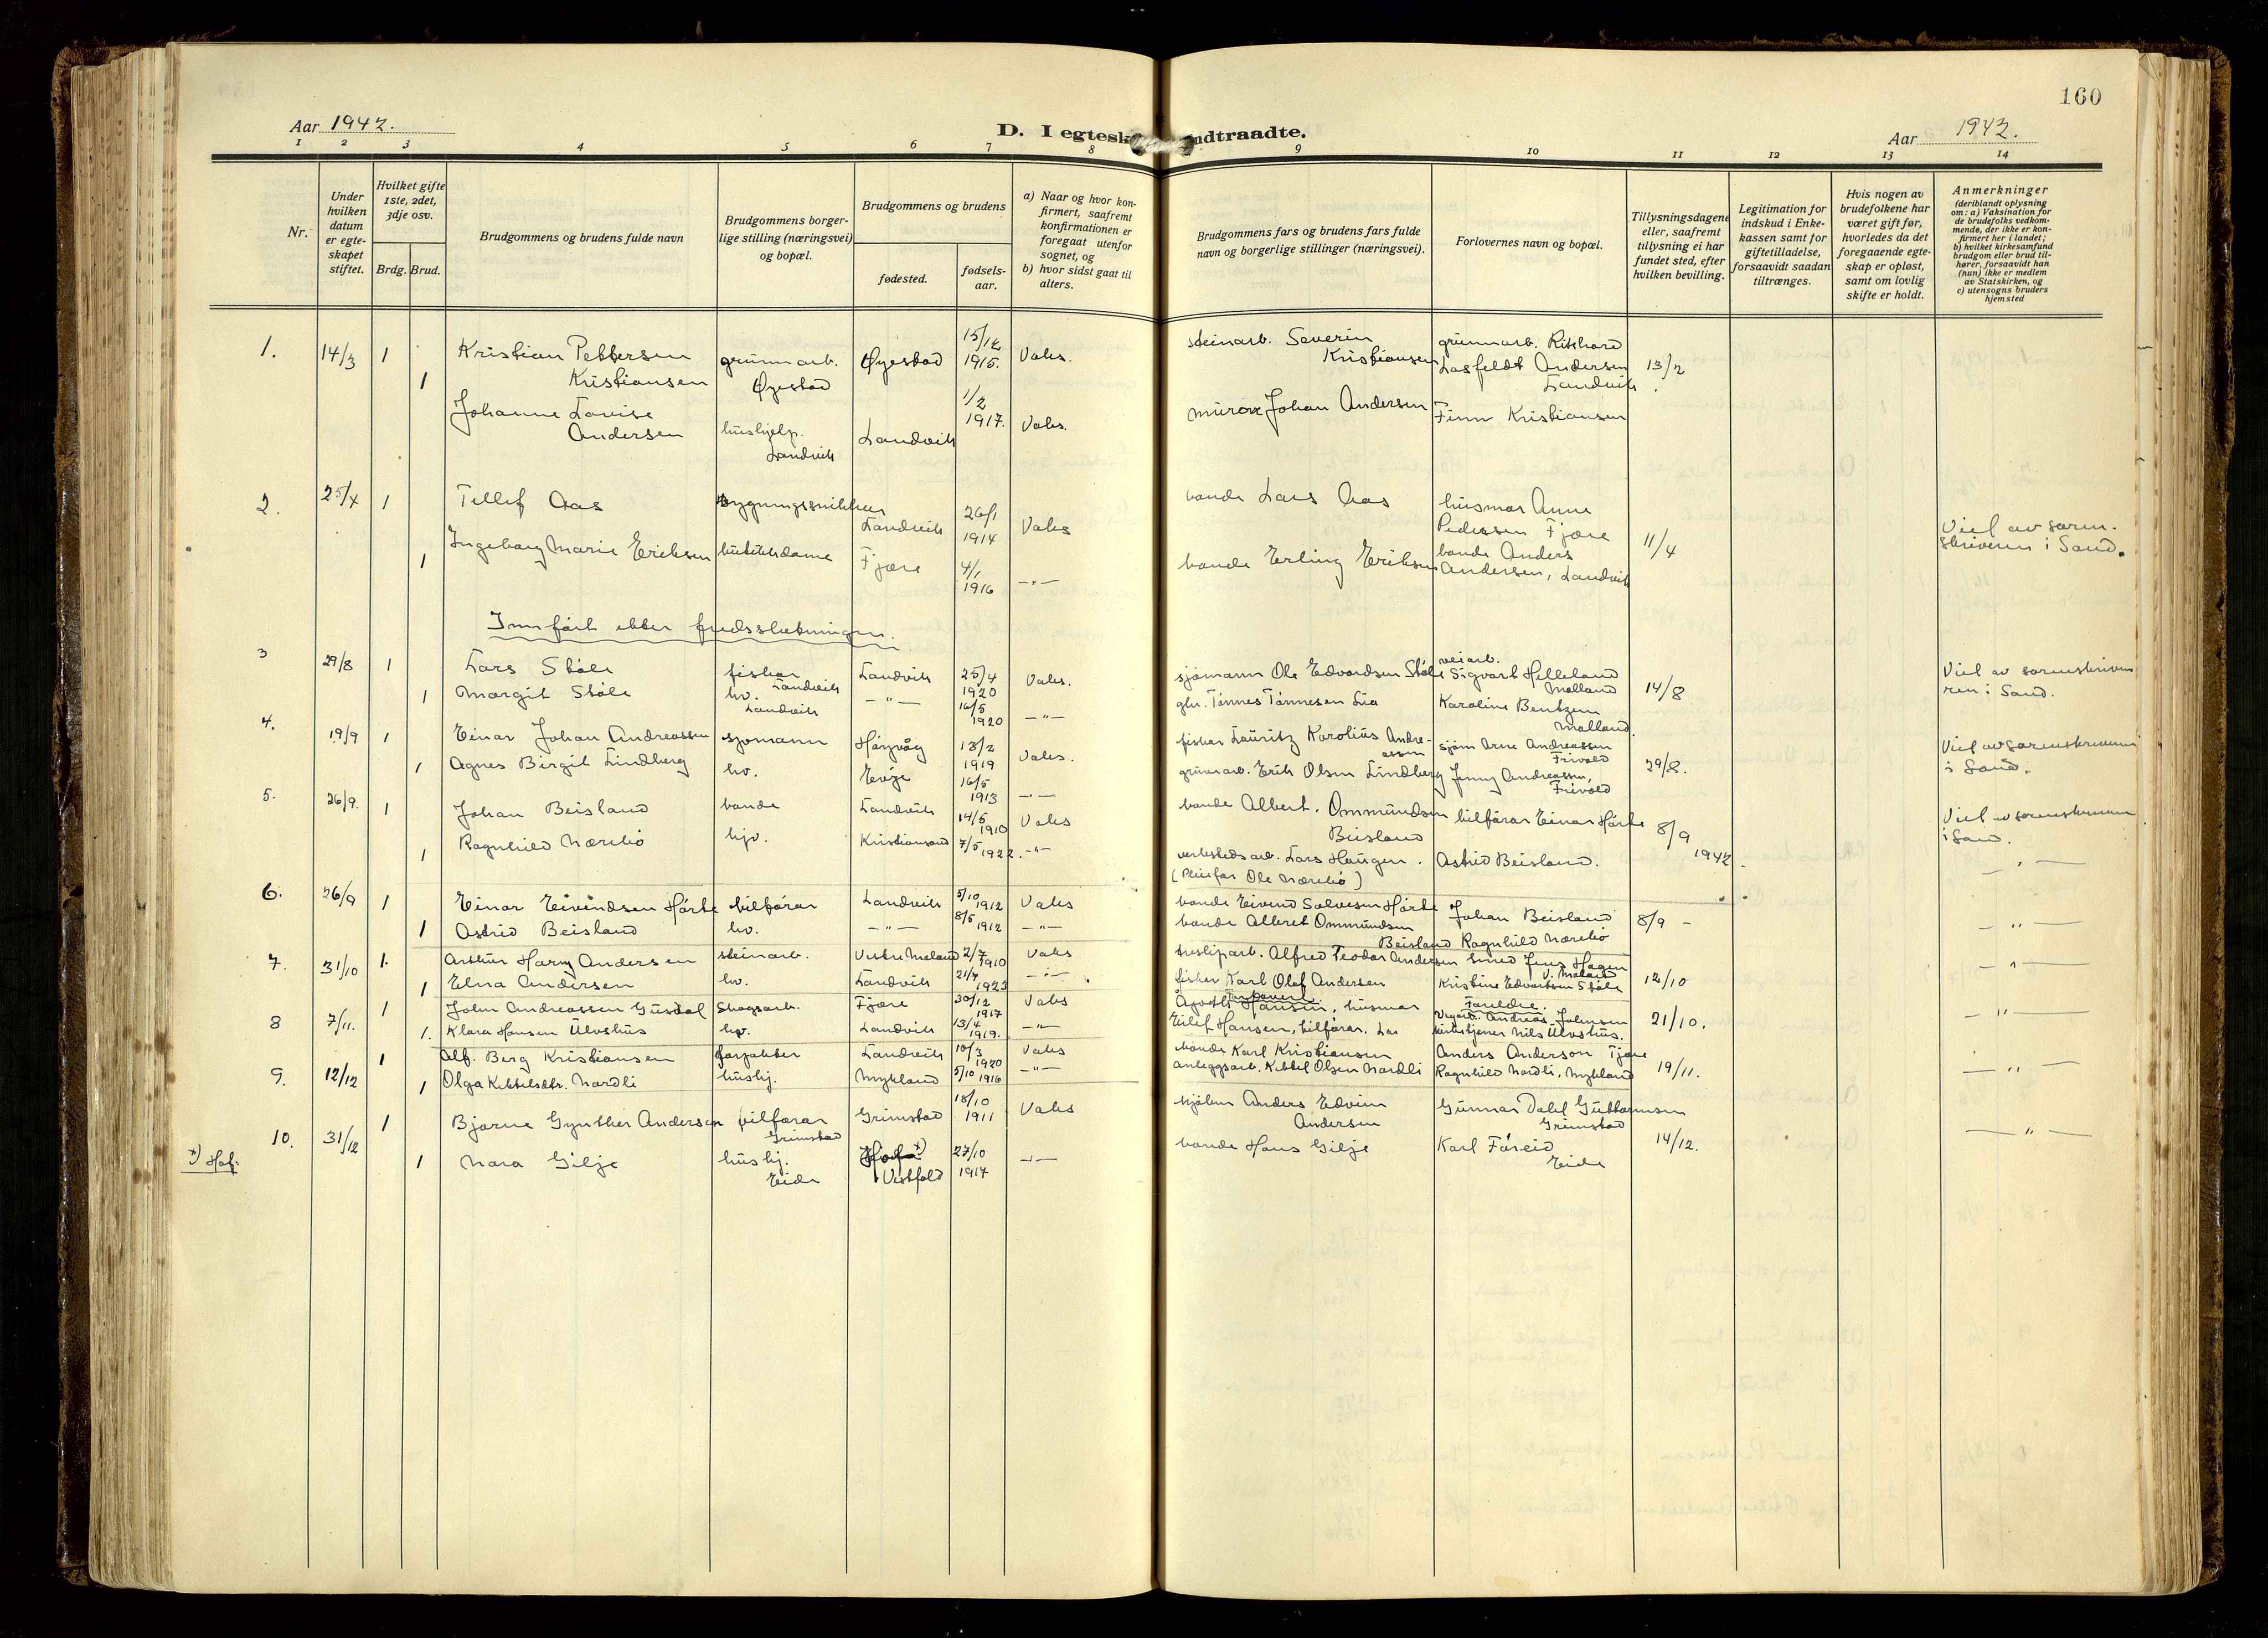 160
Aar 1942.
D. I egtesk
ndtraadte.
Aar 1942.
1 2 3 4 5 6 7 8 9 10 11 12 13 14
Nr.
Under hvilken datum er egte- skapet stiftet.
Hvilket gifte 1ste, 2det, 3dje osv.
Brdg. Brud.
Brudgommens og brudens fulde navn
Brudgommens borger- lige stilling (næringsvei) og bopæl.
Brudgommens og brudens
fødested.
fødsels- aar.
a) Naar og hvor kon- firmert, saafremt konfirmationen er foregaat utenfor sognet, og
b) hvor sidst gaat til alters.
Brudgommens fars og brudens fars fulde navn og borgerlige stillinger (næringsvei).
Forlovernes navn og bopæl.
Tillysningsdagene eller, saafremt tillysning ei har fundet sted, efter hvilken bevilling.
Legitimation for indskud i Enke- kassen samt for giftetilladelse, forsaavidt saadan tiltrænges.
Hvis nogen av brudefolkene har været gift før, hvorledes da det foregaaende egte- skap er opløst, samt om lovlig skifte er holdt.
Anmerkninger (deriblandt oplysning om: a) Vaksination for de brudefolks vedkom- mende, der ikke er kon- firmert her i landet; b) hvilket kirkesamfund brudgom eller brud til- hører, forsaavidt han (hun) ikke er medlem av Statskirken, og c) utensogns bruders hjemsted
1. 14/3 1 Kristian Pettersen Kristiansen grunnarb. Øyestad Øyestad 15/12 1915. Vaks. steinarb. Severin Kristiansen grunnarb. Rikhard Losfeldt Andersen Landvik 13/2
1 Johanne Lovise Andersen hushjelp. Landvik Landvik 1/2 1917. Vaks. murar Johan Andersen Finn Kristiansen
2. 25/4 1 Tellef Aas bygningssnikkar Landvik 26/1 1914 Vaks bonde Lars Aas husmor Anne Pedersen Fjære 11/4 Viet av soren- skriveren i Sand.
1 Ingeborg Marie Eriksen butikkdame Fjære 4/1 1916 —"— bonde Erling Eriksen bonde Anders Andersen, Landvik
Innført etter fredsslutningen.
3 29/8 1 Lars Støle fiskar Landvik Landvik 25/4 1920 Vaks. sjømann Ole Edvardsen Støle veiarb. Sigvart Helleland Molland 14/8 Viet av sorenskrive ren i Sand.
1 Margit Støle hv. Landvik —"— 16/5 1920 —"— Tønnes Tønnesen Lia Karoline Bentzen Molland.
4. 19/9 1 Einar Johan Andreassen sjømann Høyvåg 18/2 1919 Vaks. fiskar Lauritz Karolius Andre- assen sjøm Arne Andreassen Frivold 29/8. Viet av sorenskriveren i Sand.
1 Agnes Birgit Lindberg hv. Evje 16/5 1913 —"— grunnarb. Erik Olsen Lindberg Jenny Andreassen, Frivold
5. 26/9. 1 Johan Beisland bonde Landvik 14/5 1910 Vaks bonde Albert Ommundsen Beisland bilførar Einar Hørte 8/9 1942. Viet av sorenskriveren i Sand.
1 Ragnhild Nærebø hjv. Kristiansand 7/5 1922. —"— verkstedsarb. Lars Haugen. (Pleiefar Ole Nærebø) Astrid Beisland. —"—
6. 26/9 1 Einar Eivindsen Hørte bilførar Landvik 5/10 1912 Vaks bonde Eivind Salvesen Hørte Johan Beisland 8/9 — —"—
1 Astrid Beisland hv. —"— 8/5 1912 —"— bonde Albret Ommundsen Beisland Ragnhild Nærebø
7. 31/10 1. Arthur Harry Andersen steinarb. Vestre Moland 2/7 1910 Vaks tresliparb. Alfred Teodor Andersen Smed Jens Hagen V. Moland 12/10 —"—
1 Elna Andersen hv. Landvik 21/7 1923 —"— fisker Karl Olaf Andersen Kristine Edvartsen Støle
8 7/11. 1 John Andreassen Gusdal Skogsarb. Fjære 30/12 1917 Vaks Hansen, husmor Foreldre. Vegarb. Andreas Johnsen 21/10. —"—
1. Klara Hansen Ulvshus hv. Landvik 13/4 1919. —"— Eilef Hansen, bilførar. kirketjener Nils Ulvshus.
9. 12/12 1 Alf. Berg Kristiansen forpakter Landvik 10/3 1920 Vaks bonde Karl Kristiansen Anders Anderson Fjære 19/11. —"—
1 Olga Kittelsdtr. Nordli hushj. Mykland 5/10 1916 —"— anleggsarb. Kittel Olsen Nordli Ragnhild Nordli, Mykland
10. 31/12 1 Bjarne Gynther Andersen bilførar Grimstad Grimstad 18/10 1911 Vaks Anders Edvin Andersen Gunnar Dahl Guttormsen Grimstad 14/12. —"—
x) Hof. 1 Nora Gilje hushj. Eide Hof x) Vestfold 27/10 1917 —"— bonde Hans Gilje Karl Føreid Eide